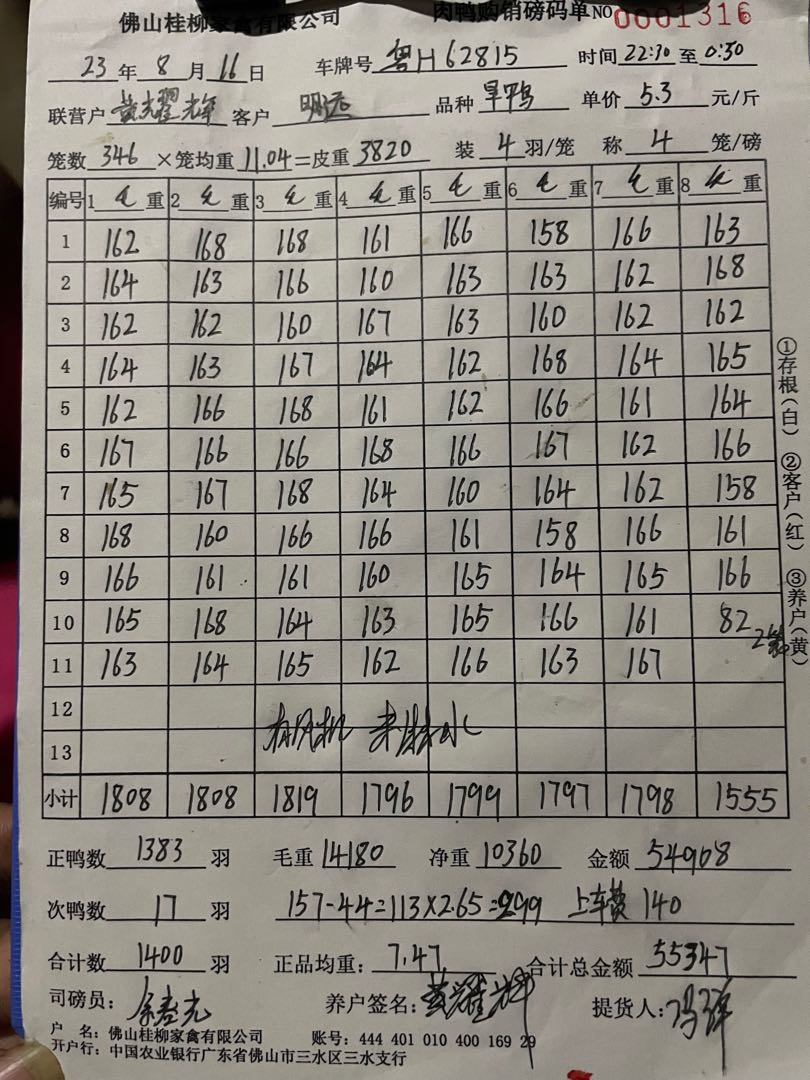 佛山桂柳家禽有限公司 肉鸭购销磅码单NO 0001316
23年8月16日 车牌号 粤H62815 时间22:10至0:30
联营户 黄耀辉 客户 明远 品种 旱鸭 单价 5.3 元/斤
笼数 346 ×笼均重11.04=皮重3820 装 4 羽/笼 称 4 笼/磅
编号 1 毛 重 2 毛 重 3 毛 重 4 毛 重 5 毛 重 6 毛 重 7 毛 重 8 毛 重
1 162 168 168 161 166 158 166 163
2 164 163 166 160 163 163 162 168
3 162 162 160 167 163 160 162 162
4 164 163 167 164 162 168 164 165
5 162 166 168 161 162 166 161 164
6 167 166 166 168 166 167 162 166
7 165 167 168 164 160 164 162 158
8 168 160 166 166 161 158 166 161
9 166 161 161 160 165 164 165 166
10 165 168 164 163 165 166 161 82
11 163 164 165 162 166 163 167
12
13
小计 1808 1808 1819 1796 1799 1797 1798 1555
正鸭数 1383 羽 毛重 14180 净重 10360 金额 54908
次鸭数 17 羽 157-44=113×2.65=299 上车费 140
合计数 1400 羽 正品均重: 7.47 合计总金额 55347
司磅员: 养户签名: 黄耀辉 提货人:
户 名: 佛山桂柳家禽有限公司 账号: 444 401 010 400 169 29
开户行: 中国农业银行广东省佛山市三水区三水支行
①存根(白) ②客户(红) ③养户(黄)